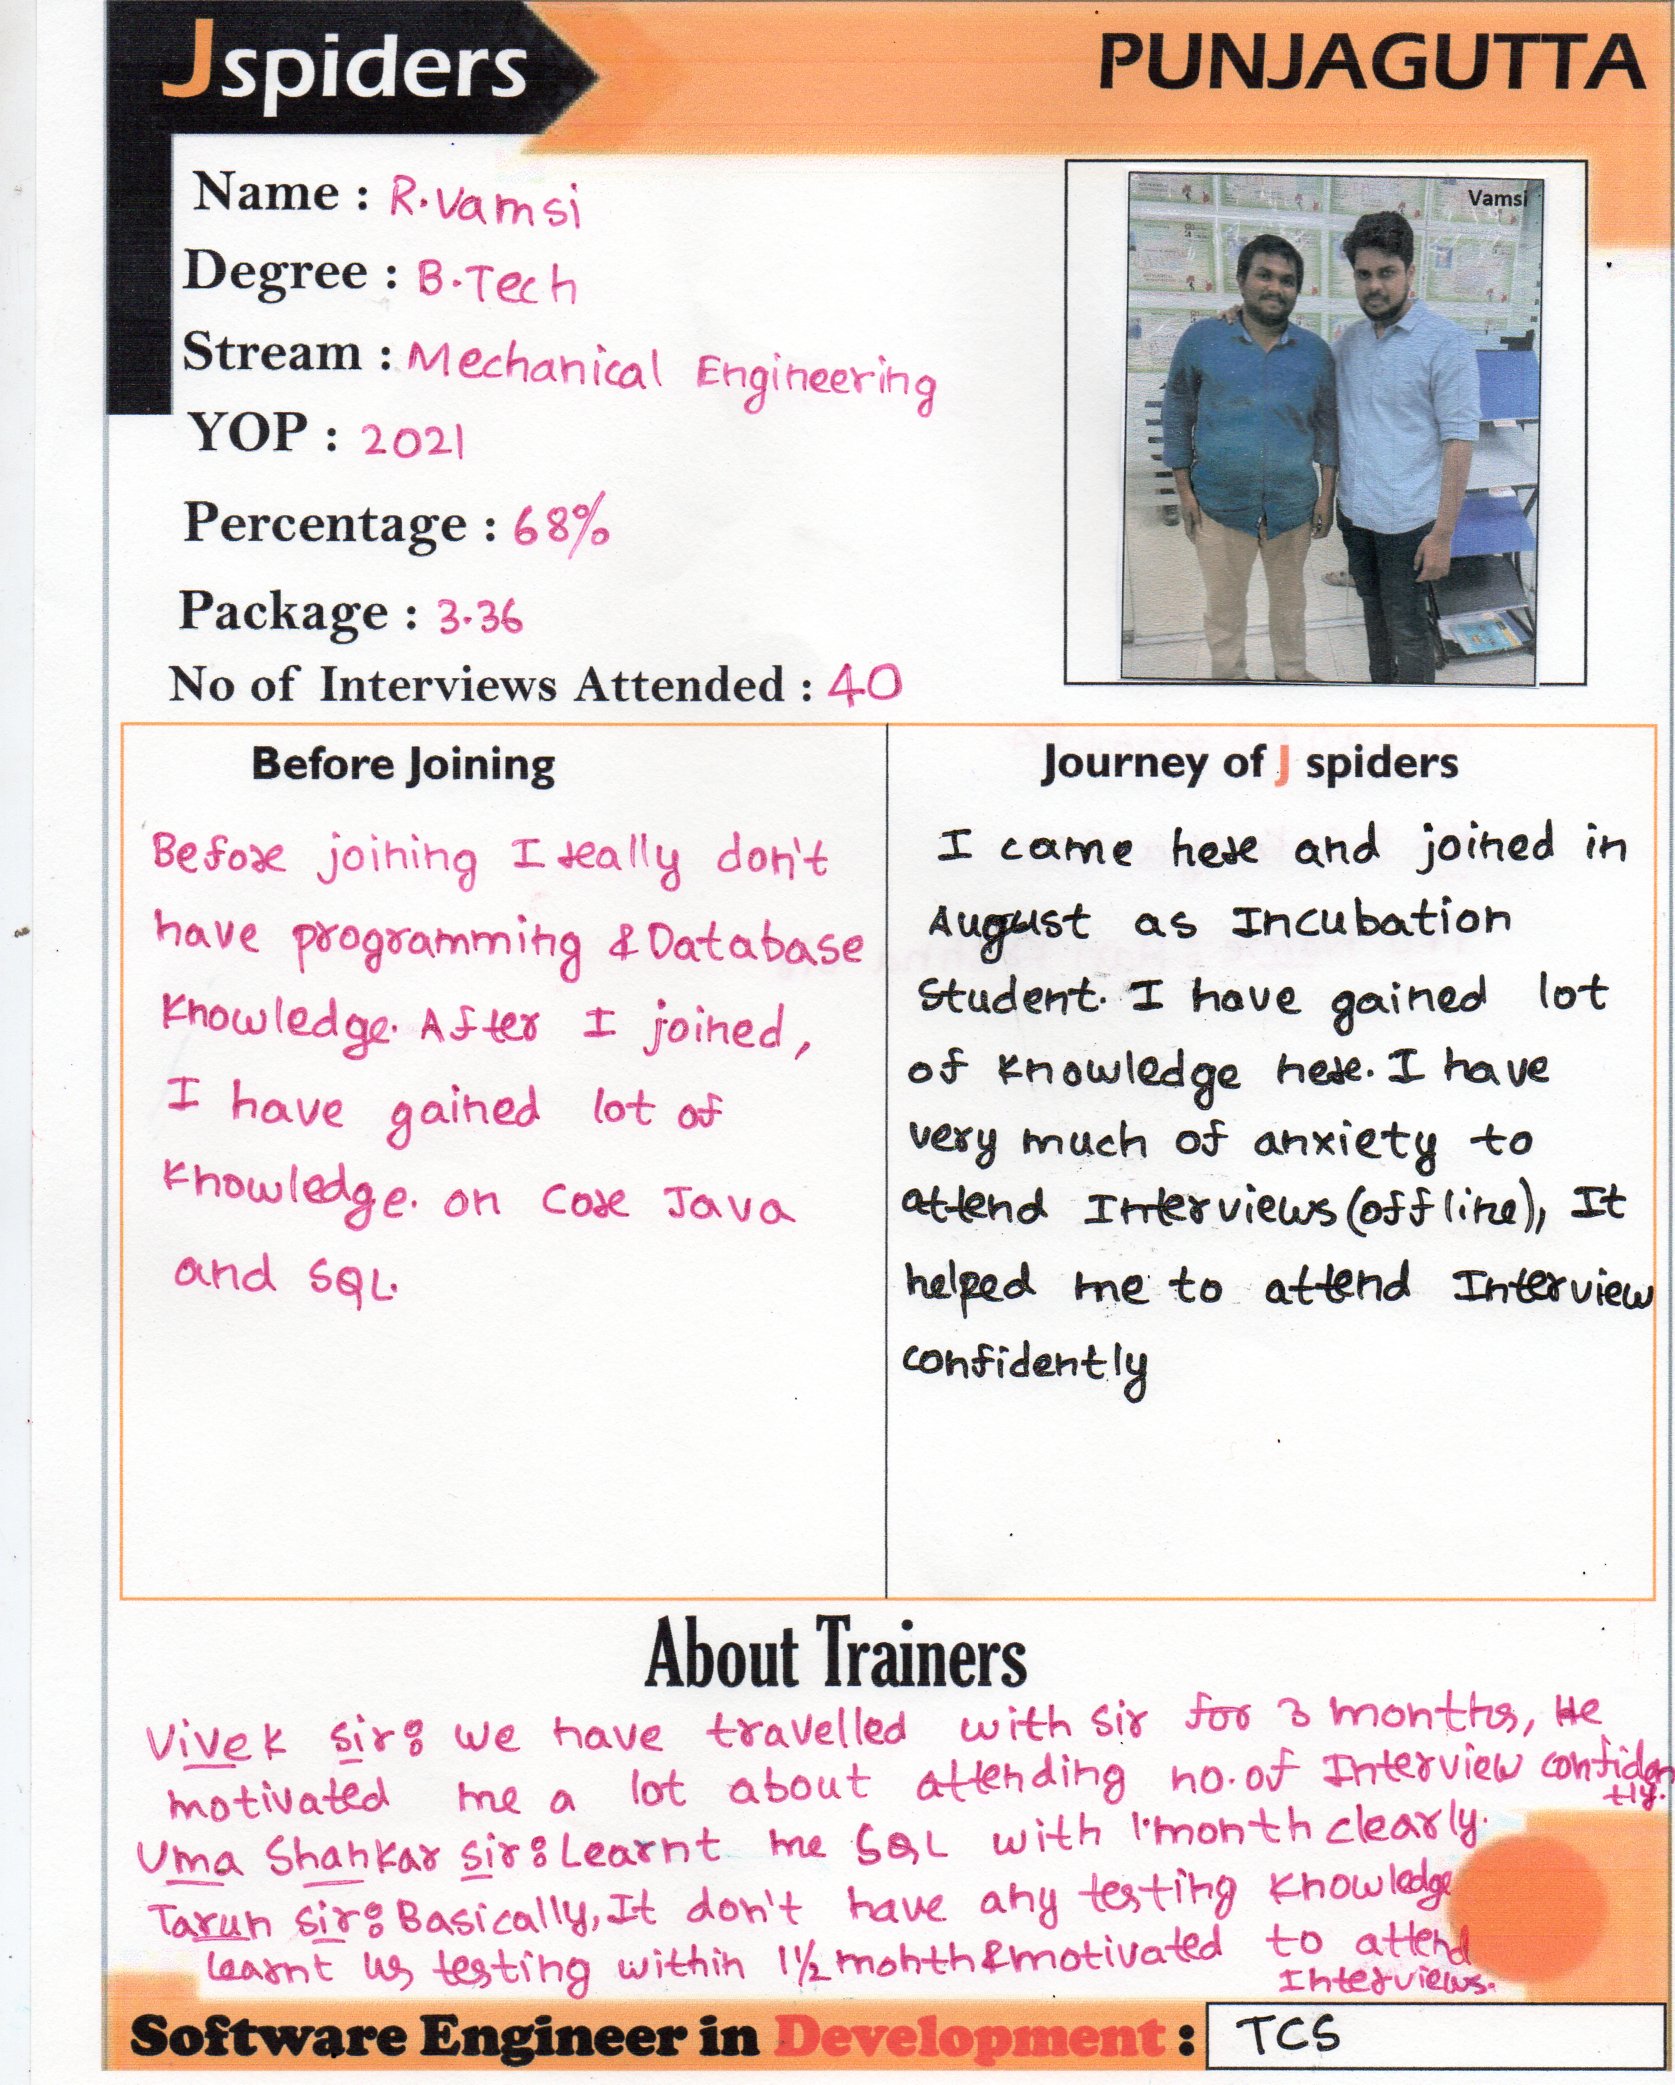 Jspiders
PUNJAGUTTA
Vamsi
Name : R.Vamsi
Degree : B.Tech
Stream : Mechanical Engineering
YOP : 2021
Percentage : 68%
Package : 3.36
No of Interviews Attended : 40
Before Joining
Before joining I really don't
have programming & Database
Knowledge. After I joined,
I have gained lot of
Knowledge. on Core Java
and SQL.
Journey of J spiders
I came here and joined in
August as Incubation
Student. I have gained lot
of Knowledge here. I have
very much of anxiety to
attend Interviews (offline), It
helped me to attend Interview
confidently
About Trainers
Vivek sir: We have travelled with sir for 3 months, He
motivated me a lot about attending no.of Interview confiden
tly.
Uma Shankar sir: Learnt me SQL with 1 month clearly.
Tarun sir: Basically, It don't have any testing Knowledge
learnt us testing within 1 1/2 month & motivated to attend
Interviews.
Software Engineer in Development : TCS